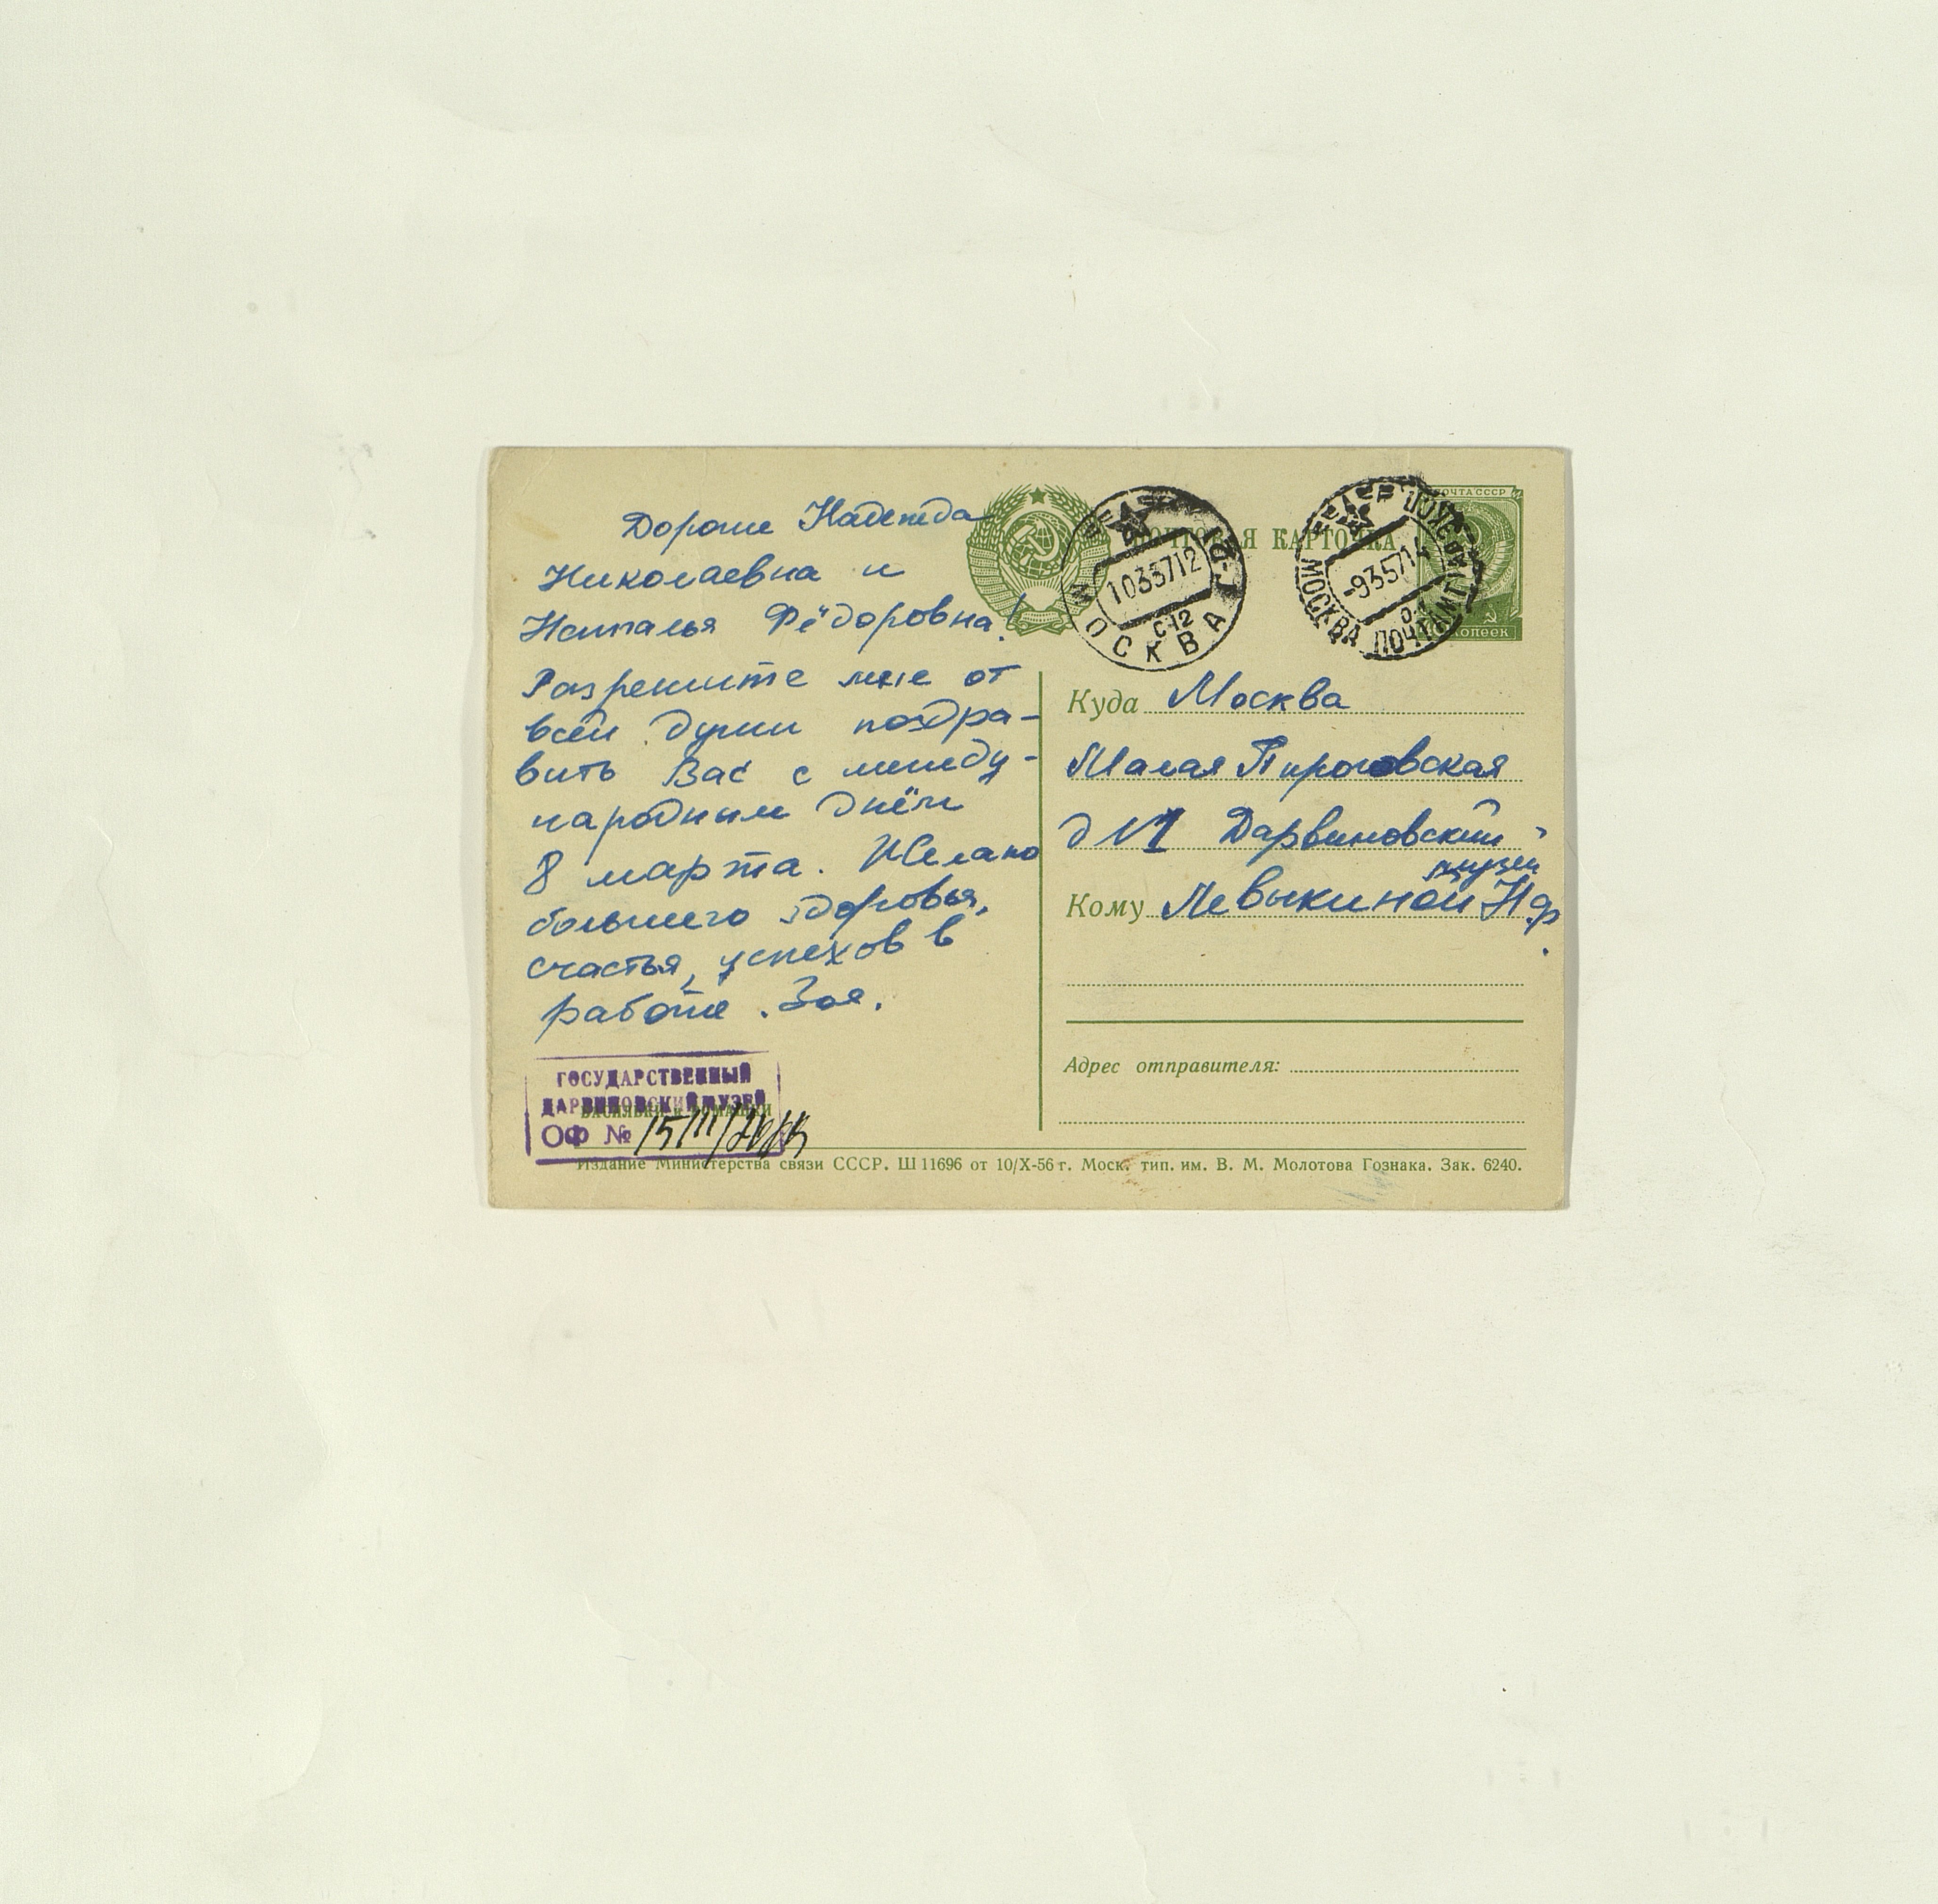 Дорогие Надежда
Николаевна и
Наталья Фёдоровна!
Разрешите мне от
всей души поздра-
вить Вас с между-
народным днём
8 марта. Желаю
большего здоровья,
счастья, успехов в
работе. Зоя.
ГОСУДАРСТВЕННЫЙ
ДАРВИНОВСКИЙ МУЗЕЙ
ВАСИЛЬКИ И РОМАШКИ
ОФ №
ПОЧТОВАЯ КАРТОЧКА
МОСКВА
10 3 57 12
С-12
МОСКВА ПОЧТАМТ
-9 3 57 14
ПОЧТА СССР
КОПЕЕК
Куда Москва
Малая Пироговская
д №1 Дарвиновский
музей
Кому Левыкиной Н.Ф.
Адрес отправителя:
Издание Министерства связи СССР. Ш 11696 от 10/X-56 г. Моск. тип. им. В. М. Молотова Гознака. Зак. 6240.